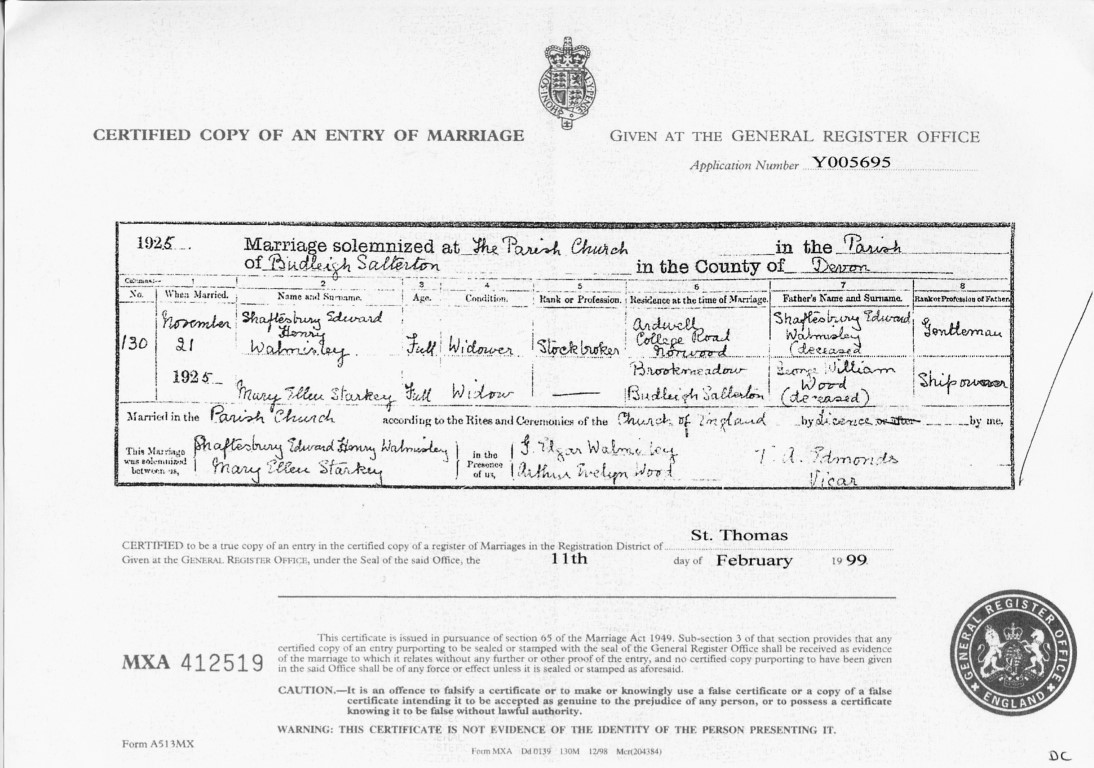 HONI·SOIT·QUI·MAL·Y·PENSE
CERTIFIED COPY OF AN ENTRY OF MARRIAGE
GIVEN AT THE GENERAL REGISTER OFFICE
Application Number Y005695
1925. Marriage solemnized at The Parish Church in the Parish
of Budleigh Salterton in the County of Devon
Columns:- 1 2 3 4 5 6 7 8
No. When Married. Name and Surname. Age. Condition. Rank or Profession. Residence at the time of Marriage. Father's Name and Surname. Rank or Profession of Father.
130 November 21 1925
Shaftesbury Edward
Henry
Walmisley
Full Widower Stockbroker
Ardwell
College Road
Norwood
Shaftesbury Edward
Walmisley
(deceased
Gentleman
Mary Ellen Starkey Full Widow
Brookmeadow
Budleigh Salterton
George William
Wood
(deceased)
Shipowner
Married in the Parish Church according to the Rites and Ceremonies of the Church of England by Licence or after by me,
This Marriage
was solemnized
between us,
Shaftesbury Edward Henry Walmisley
Mary Ellen Starkey
in the
Presence
of us,
Edgar Walmisley
Arthur Evelyn Wood
Edmonds
Vicar
CERTIFIED to be a true copy of an entry in the certified copy of a register of Marriages in the Registration District of St. Thomas
Given at the GENERAL REGISTER OFFICE, under the Seal of the said Office, the 11th day of February 1999
MXA 412519
This certificate is issued in pursuance of section 65 of the Marriage Act 1949. Sub-section 3 of that section provides that any
certified copy of an entry purporting to be sealed or stamped with the seal of the General Register Office shall be received as evidence
of the marriage to which it relates without any further or other proof of the entry, and no certified copy purporting to have been given
in the said Office shall be of any force or effect unless it is sealed or stamped as aforesaid.
CAUTION.—It is an offence to falsify a certificate or to make or knowingly use a false certificate or a copy of a false
certificate intending it to be accepted as genuine to the prejudice of any person, or to possess a certificate
knowing it to be false without lawful authority.
WARNING: THIS CERTIFICATE IS NOT EVIDENCE OF THE IDENTITY OF THE PERSON PRESENTING IT.
GENERAL REGISTER OFFICE
ENGLAND
Form A513MX
Form MXA Dd 0139 130M 12/98 Mcr(204384)
DC